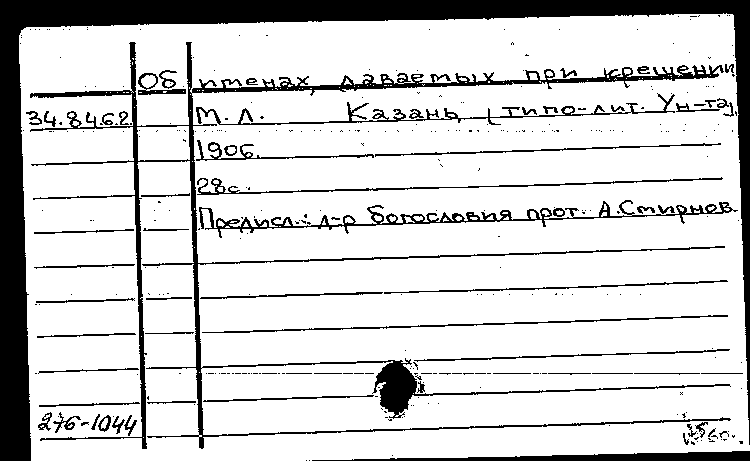 Об именах, даваемых при крещении
34.8462 М. Л. Казань, [типо-лит. Ун-та],
1906.
28с.
Предисл.: д-р богословия прот. А.Смирнов.
276-1044